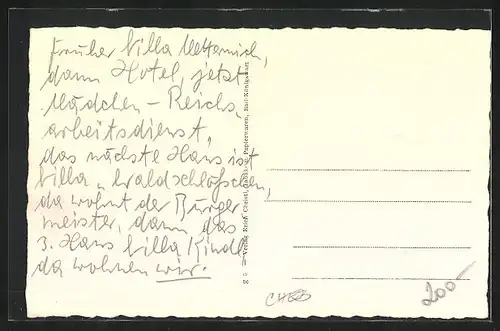 Früher Villa Metternich,
dann Hotel, jetzt
Mädchen - Reichs,
arbeitsdienst,
das nächste Haus ist
Villa „ Waldschlößchen,
da wohnt der Bürger
meister, dann das
3. Haus Villa Kindl
da wohnen wir.
Verlag Erich Christl, Papierwaren, Bad-Königswart
200-